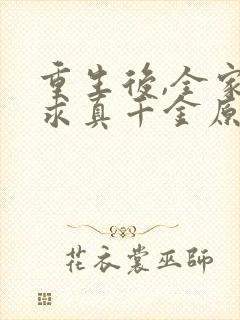 重生後,全家
求真千金原
花衣裳巫師